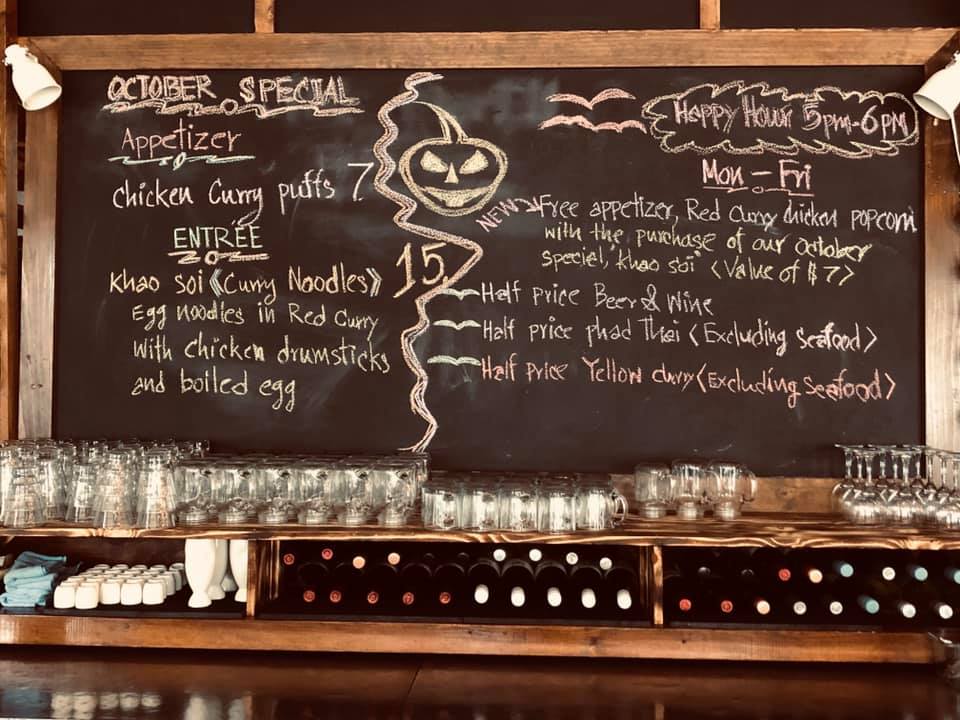 OCTOBER SPECIAL
Appetizer
chicken Curry puffs 7
ENTRÉE
Khao soi《Curry Noodles》 15
Egg noodles in Red Curry
with chicken drumsticks
and boiled egg
Happy Hour 5pm-6pm
Mon - Fri
NEW Free appetizer, Red curry chicken popcorn
with the purchase of our october
speciel, khao soi <Value of $7>
Half price Beer & Wine
Half price phad Thai <Excluding Seafood>
Half price Yellow curry <Excluding Seafood>